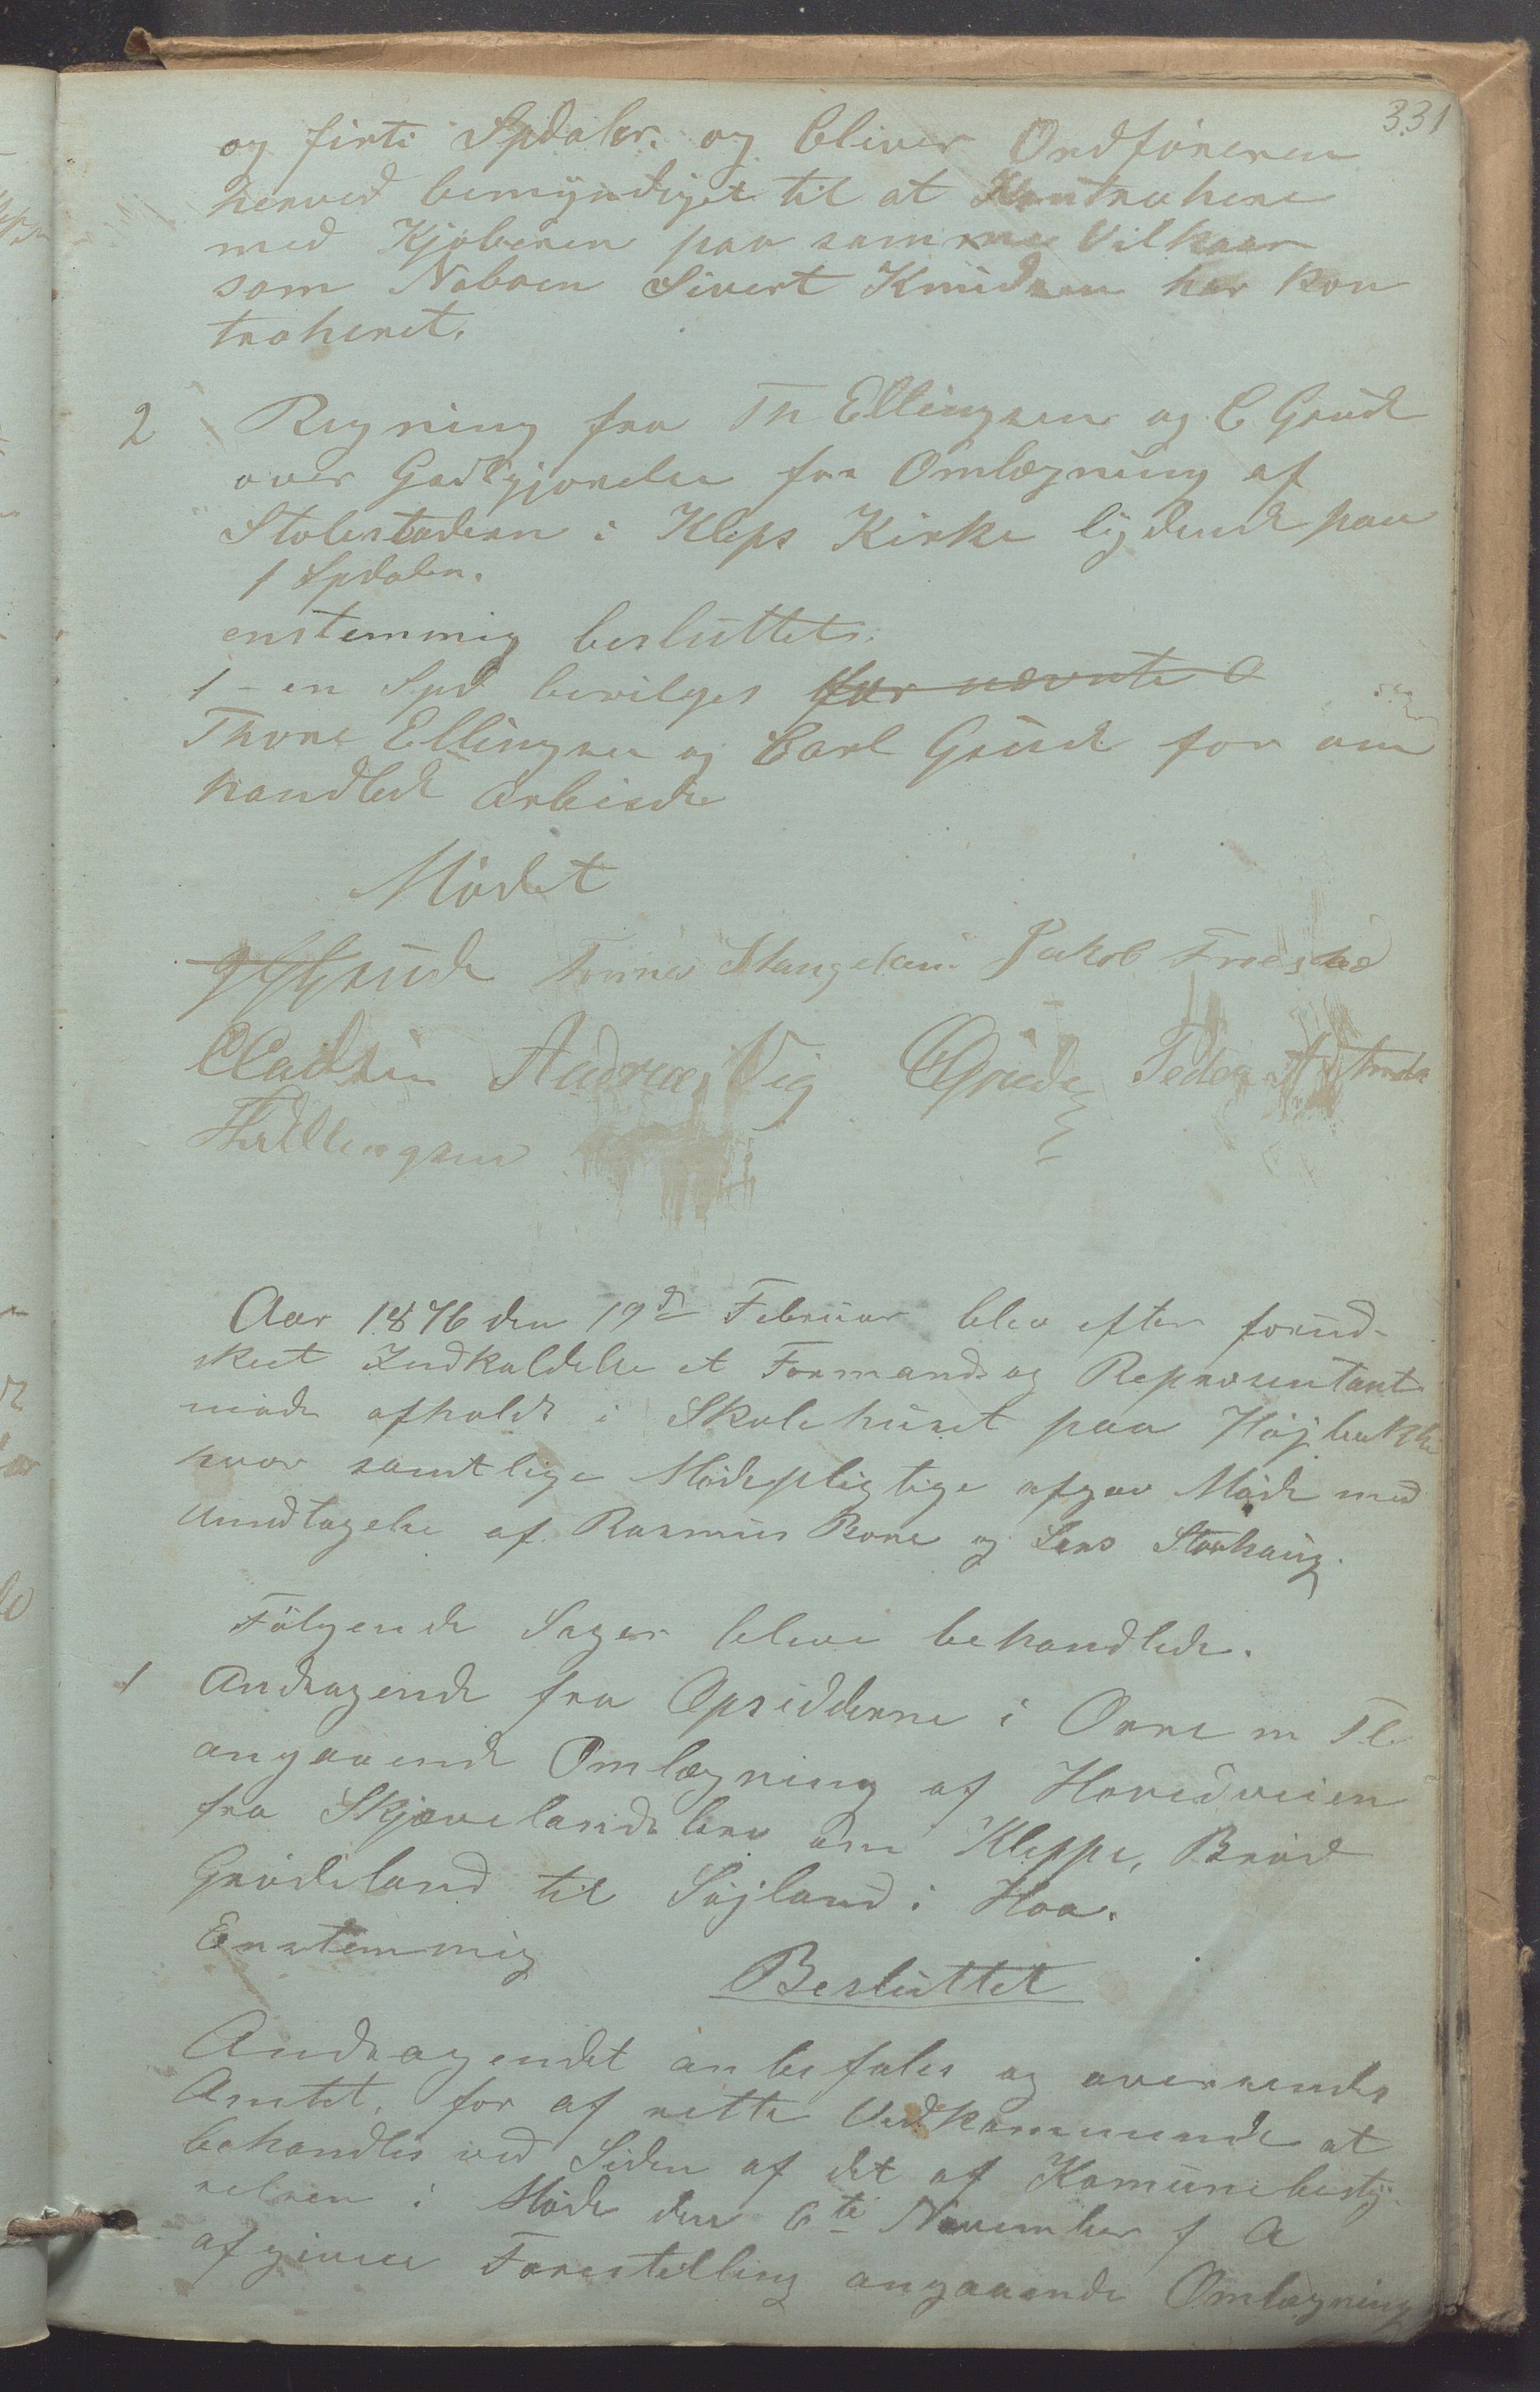 331
og firti Spdaler. og bliver Ordføreren
herved bemyndiget til at Kontrahere
med Kjøberen paa samme Vilkaar
som Naboen Sivert Knudsen har kon
traheret.
2 Regning fra Th Ellingsen og C Grude
over Godtgjørelse for Omlægning af
Stolestadern i Kleps Kirke lydende paa
1 Spdaler.
enstemmig besluttets.
1 - en Spd bevilges for nævnte O
Thore Ellingsen og Carl Grude for om
handlede arbeide
Mødet
Grude Tønnes Stangeland Jakob Friestad
C Madsen Andreas Vig C Grude Peder A
Th Ellingsen
Aar 1876 den 19de Februar blev efter forud-
skeet Indkaldelse et Formands og Repræsentant
møde afholdt i Skolehuset paa Højbakke
hvor samtlige Mødepligtige afgav Møde med
undtagelse af Rasmus Bore og Lars Storhaug.
Følgende Sager bleve behandlede.
1 Andragende fra Opsidderne i Orre m Fl.
angaaende Omlægning af Hovedveien
fra Skjævelandsbro om Kleppe, Bröd
Grødeland til Söjland i Haa.
Enstemmig
Besluttet
Andragendet anbefales og oversendes
Amtet, for af rette Vedkommende at
behandles ved Siden af det af Komunebesty-
relsen i Møde den 6te November f A
afgivne Forestilling angaaende Omlægning